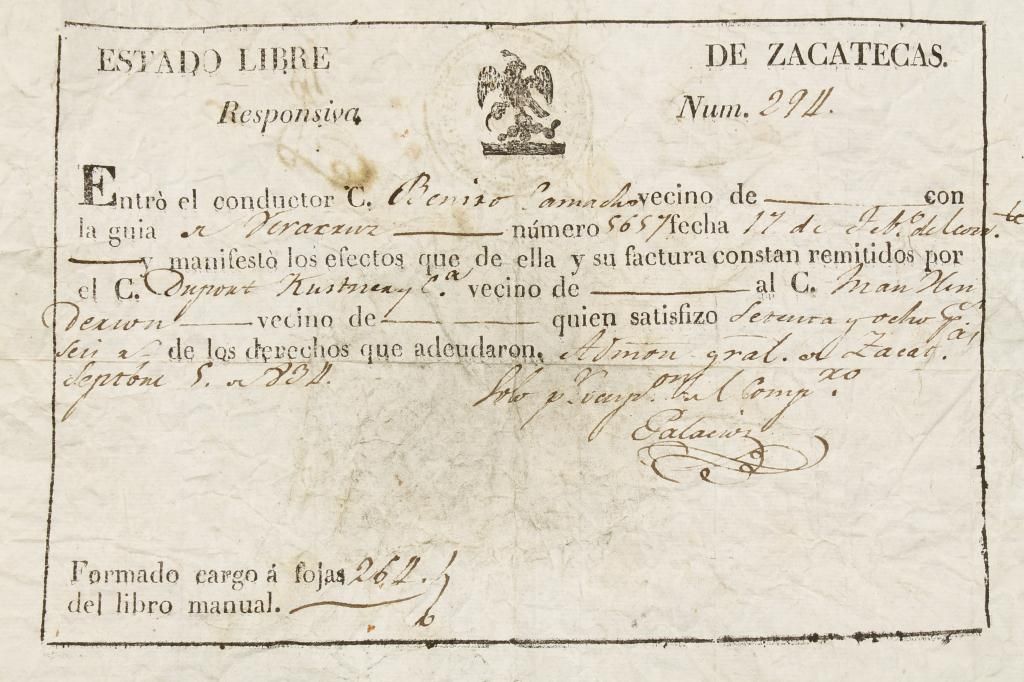 ESTADO LIBRE DE ZACATECAS.
Responsiva. Num. 294.
Entrò el conductor C. Benito Camacho vecino de con
la guia de Veracruz número 5657 fecha 17 de Feb.o del corr.te
y manifestò los efectos que de ella y su factura constan remitidos por
el C. Dupont Kustner y C.a vecino de al C. Man Hen
derson vecino de quien satisfizo sesenta y ocho p.s
seis rs de los derechos que adeudaron. Admon gral. de Zacat.
Septbre 5. de 834.
Solo p.r del
Palacios
Formado cargo á fojas 264.
del libro manual.